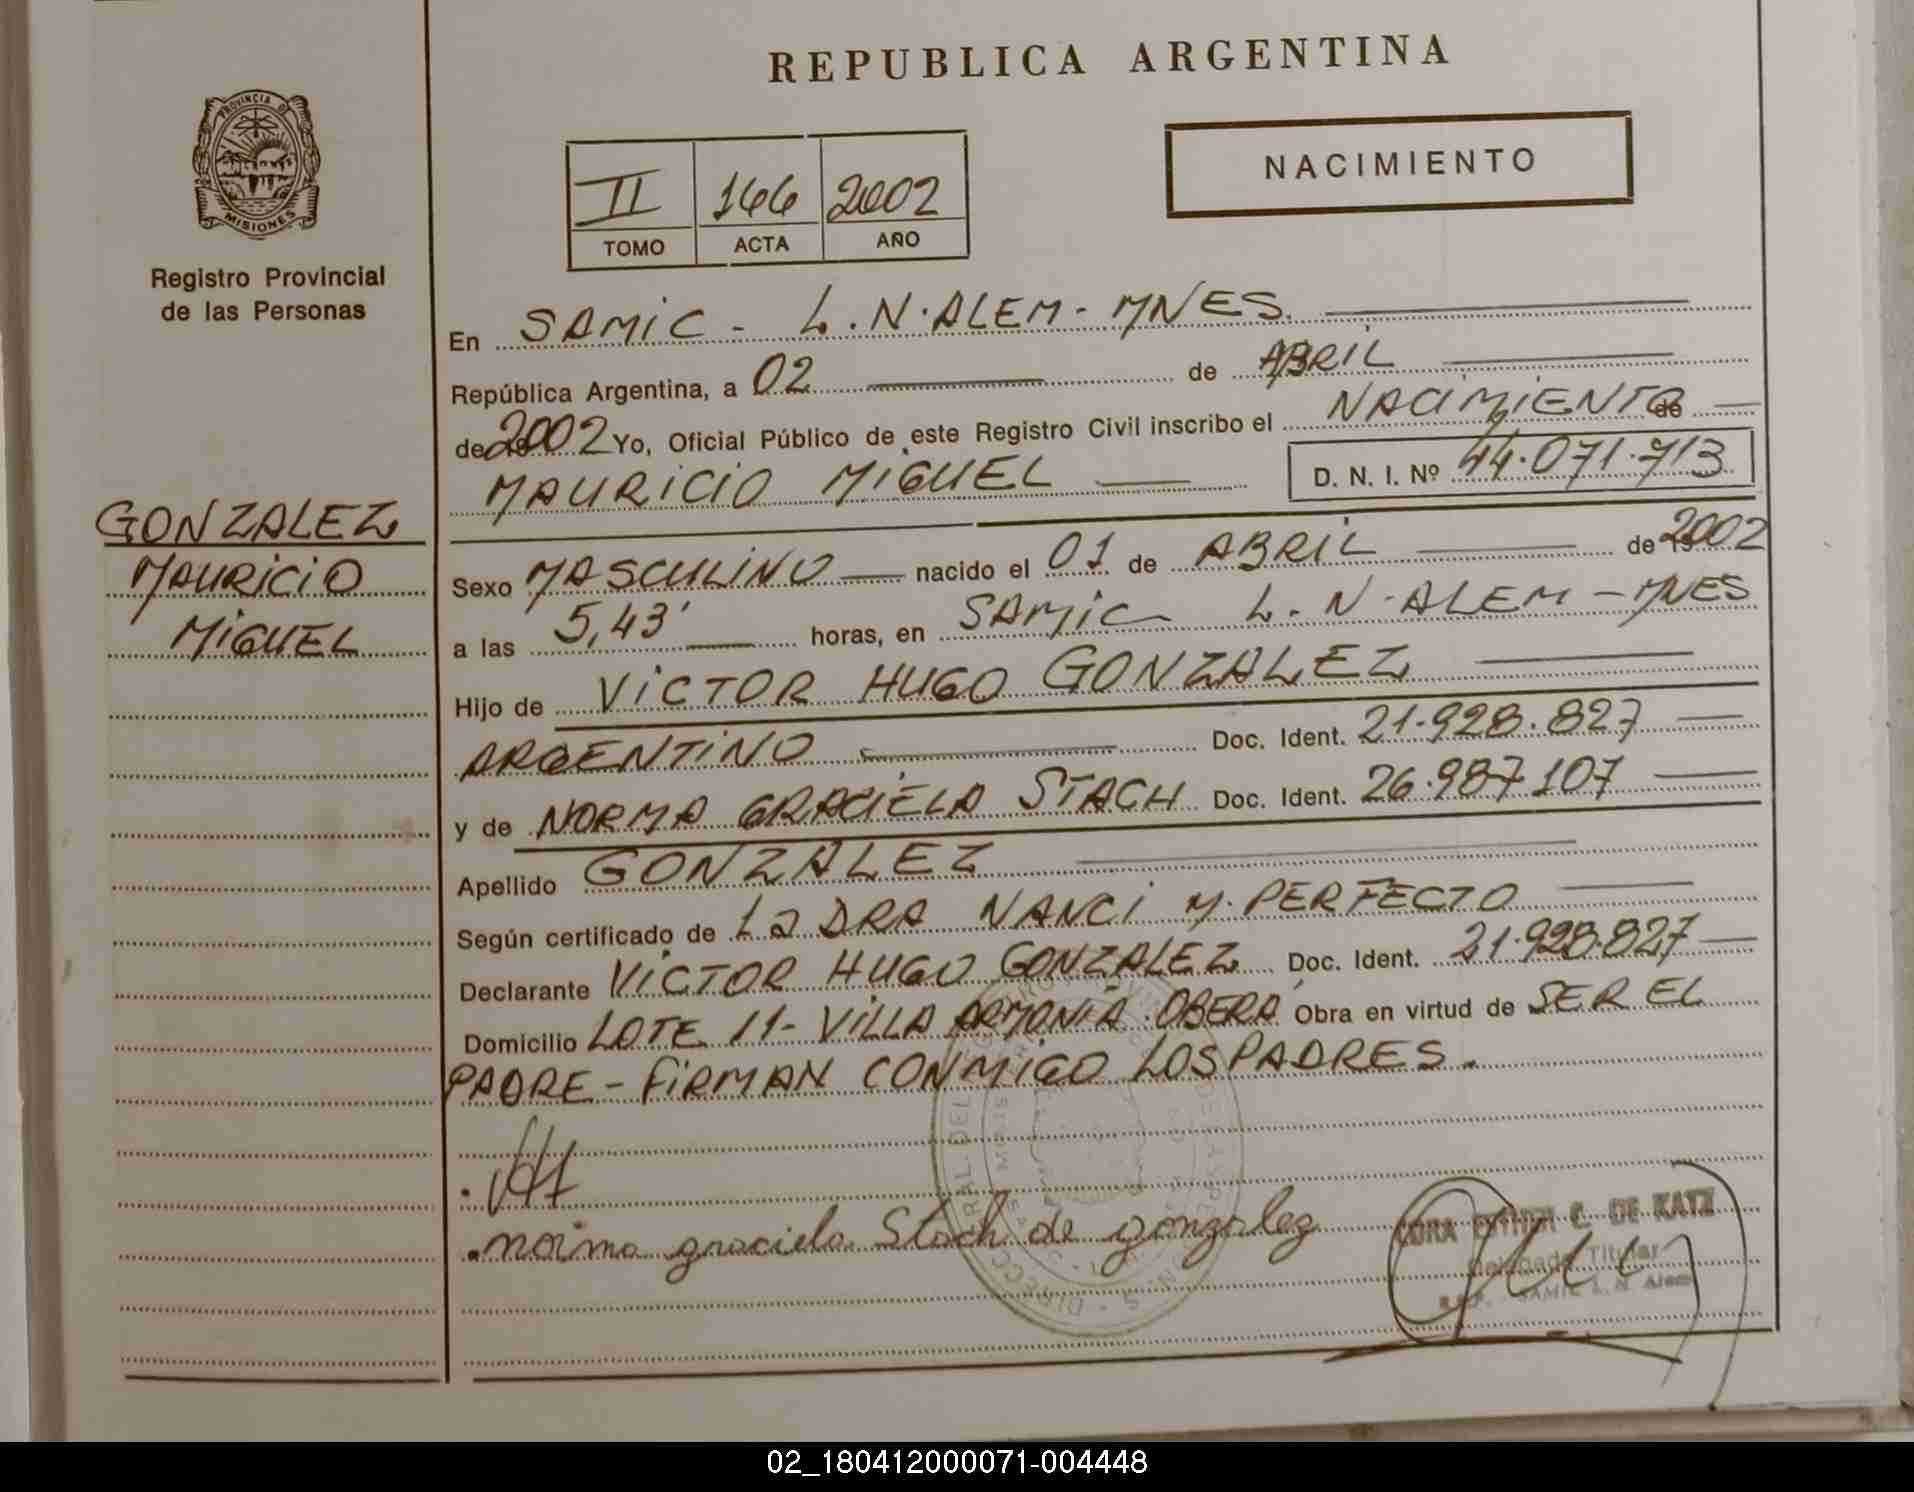 REPUBLICA ARGENTINA
PROVINCIA DE
MISIONES
Registro Provincial
de las Personas
NACIMIENTO
II 166 2002
TOMO ACTA AÑO
En SAMIC - L.N.ALEM - MNES.
República Argentina, a 02 de ABRIL
de 2002 Yo, Oficial Público de este Registro Civil inscribo el NACIMIENTO de
MAURICIO MIGUEL D. N. I. Nº 44.071.713
GONZALEZ
MAURICIO
MIGUEL
Sexo MASCULINO nacido el 01 de ABRIL de 2002
a las 5,43' horas, en SAMIC L.N.ALEM - MNES
Hijo de VICTOR HUGO GONZALEZ
ARGENTINO Doc. Ident. 21.928.827
y de NORMA GRACIELA STACH Doc. Ident. 26.987.107
Apellido GONZALEZ
Según certificado de La DRA NANCI M. PERFECTO
Declarante VICTOR HUGO GONZALEZ Doc. Ident. 21.928.827
Domicilio LOTE 11 - VILLA ARMONIA. OBERA Obra en virtud de SER EL
PADRE - FIRMAN CONMIGO LOS PADRES.
norma graciela Stach de gonzalez
CORA ESTHER C. DE KATZ
Delegada Titular
SAMIC L. N. Alem
02_180412000071-004448